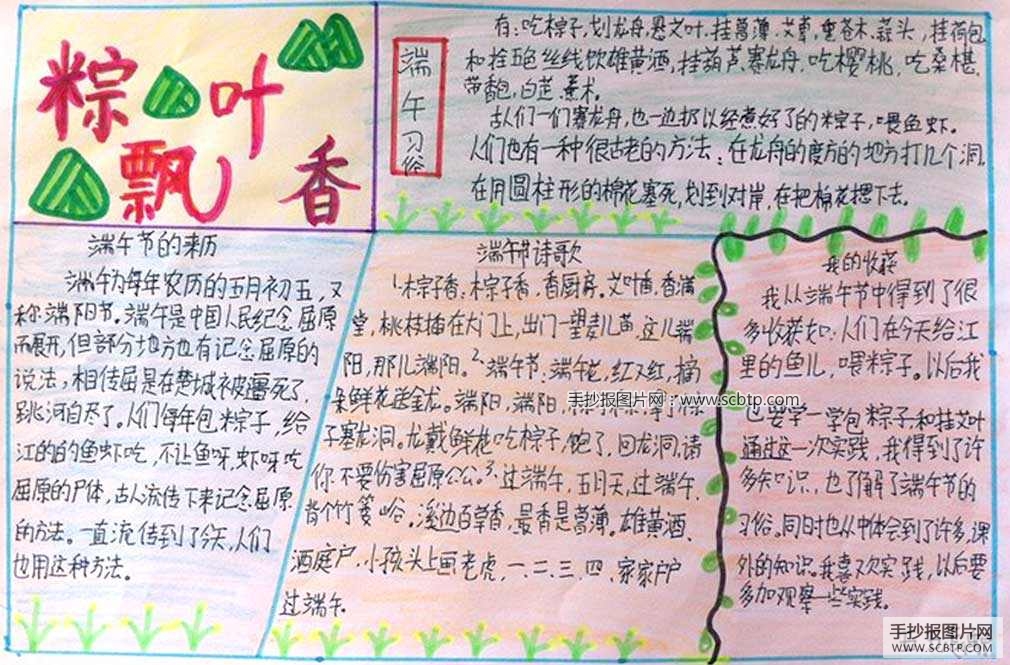 粽叶
飘香
端午习俗
有:吃粽子,划龙舟,悬艾叶,挂菖蒲、艾蒿,熏苍术,蒜头,挂荷包
和拴五色丝线饮雄黄酒,挂葫芦,赛龙舟,吃樱桃,吃桑椹,
带香包,白芷,熏术。
古人们一们赛龙舟,也一边扔以经煮好了的粽子,喂鱼虾。
人们也有一种很古老的方法:在龙舟的度方的地方打几个洞,
在用圆柱形的棉花塞死,划到对岸,在把棉花摁下去。
端午节的来历
端午为每年农历的五月初五,又
称端阳节。端午是中国人民纪念屈原
而展开,但部分地方也有记念屈原的
说法,相传屈是在楚城被逼死了,
跳河自尽了。人们每年包粽子,给
江的的鱼虾吃,不让鱼呀,虾呀吃
屈原的尸体,古人流传下来记念屈原
的方法。一直流传到了今天,人们
也用这种方法。
端午节诗歌
1.粽子香,粽子香,香厨房。艾叶香,香满
堂,桃枝插在大门上,出门一望麦儿黄,这儿端
阳,那儿端阳。2.端午节:端午花,红又红,摘
朵鲜花送金龙。端阳,端阳,
手抄报图片网:www.scbtp.com
子赛龙洞。龙戴鲜花吃粽子,饱了,回龙洞,请
你不要伤害屈原公公。3.过端午,五月天,过端午,
背个竹篓 溪边百草香,最香是菖蒲。雄黄酒、
洒庭户,小孩头上画老虎,一、二、三、四、家家户户
过端午.
我的收获
我从端午节中得到了很
多收获如:人们在今天给江
里的鱼儿,喂粽子。以后我
也要学一学包粽子和挂艾叶
通过这一次实践,我得到了许
多知识,也了解了端午节的
习俗。同时也从中体会到了许多,课
外的知识。我喜欢实践,以后要
多加观察一些实践。
手抄报图片网
WWW.SCBTP.COM